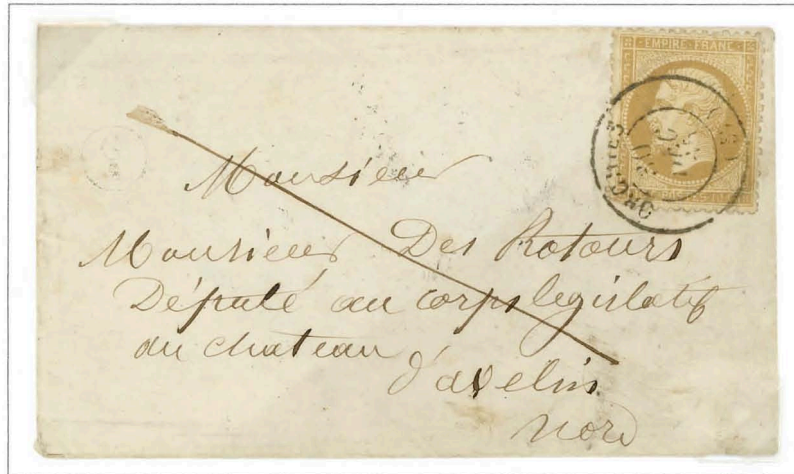 EMPIRE FRANC
ORCHIES
Monsieur
Monsieur Des Rotours
Député au corps legislatif
au chateau
d'avelin
Nord